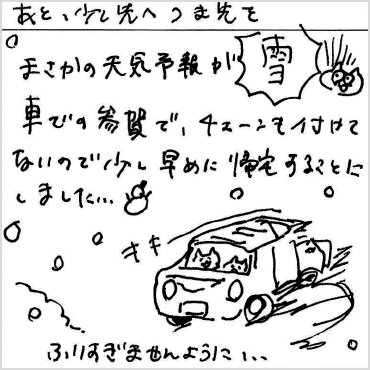 あと、少し先へ つま先を
まさかの天気予報が
雪
車での参賀で、チェーンも付けて
ないので少し早めに帰宅することに
しました…
キキ
ふりすぎませんように…